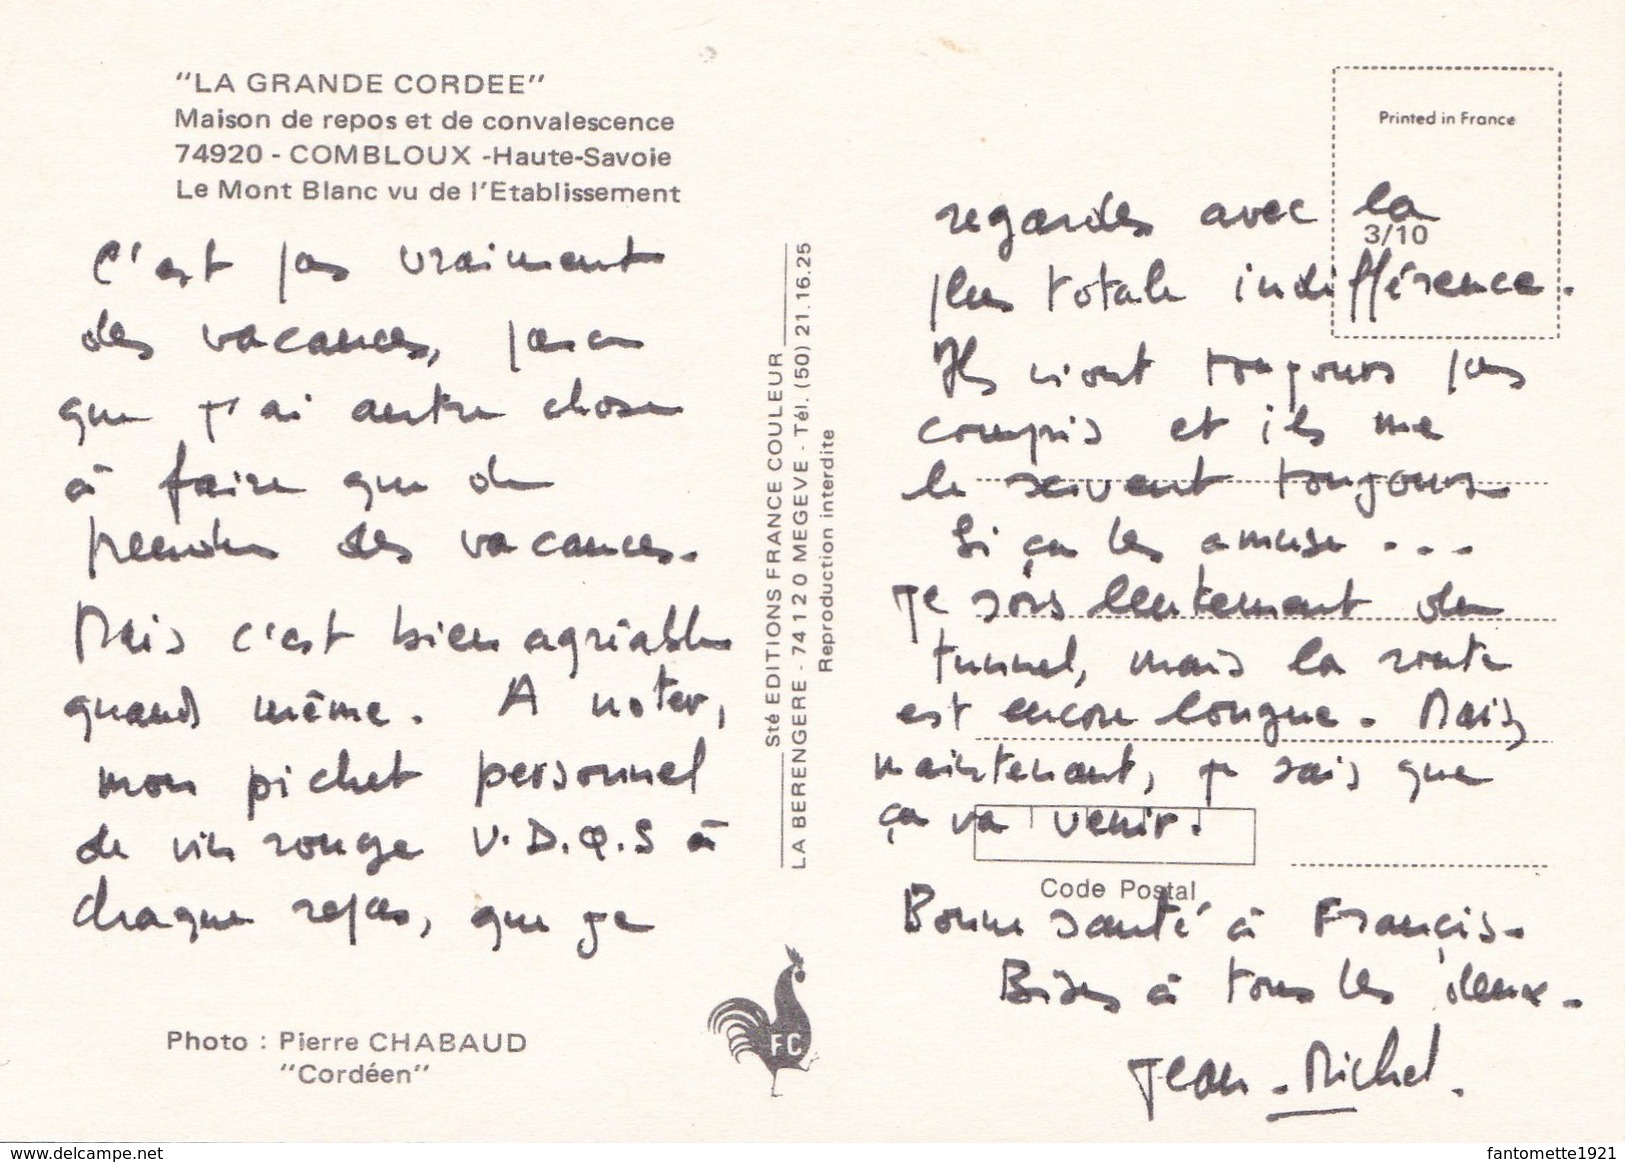 "LA GRANDE CORDEE"
Maison de repos et de convalescence
74920 - COMBLOUX -Haute-Savoie
Le Mont Blanc vu de l'Etablissement
C'est pas vraiment
des vacances, parce
que j'ai autre chose
à faire que de
prendre des vacances.
Mais c'est bien agréable
quand même. A noter,
mon pichet personnel
de vin rouge V.D.Q.S à
chaque repas, que je
Photo : Pierre CHABAUD
"Cordéen"
Sté EDITIONS FRANCE COULEUR
LA BERENGERE - 74120 MEGEVE - Tél. (50) 21.16.25
Reproduction interdite
FC
Printed in France
3/10
regardes avec la
plus totale indifférence.
Ils n'ont toujours pas
compris et ils me
le servent toujours
Si ça les amuse...
je sors lentement du
tunnel, mais la route
est encore longue. Mais,
maintenant, je sais que
ça va venir.
Code Postal
Bonne santé à Françis.
Bises à tous les deux.
Jean-Michel.
delcampe.net
fantomette1921